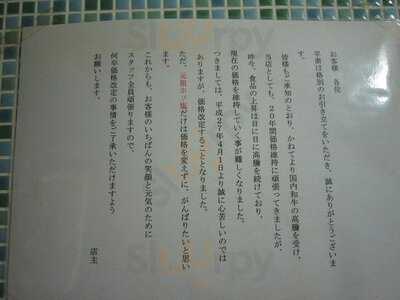 お客様 各位
平素は格別のお引き立てをいただき、誠にありがとうございます。
皆様もご承知のとおり、かねてより国内和牛の高騰を受け、
当店としても、20年間価格維持に頑張ってきましたが、
昨今、食品の上昇は日に日に高騰を続けており、
現在の価格を維持していく事が難しくなりました。
つきましては、平成27年4月1日より誠に心苦しいのでは
ありますが、価格改定することとなりました。
ただ、元祖ホソ塩だけは価格を変えずに、がんばりたいと思い
ます。
これからも、お客様のいちばんの笑顔と元気のために
スタッフ全員頑張りますので、
何卒価格改定の事情をご了承いただけますよう
お願いします。
店主